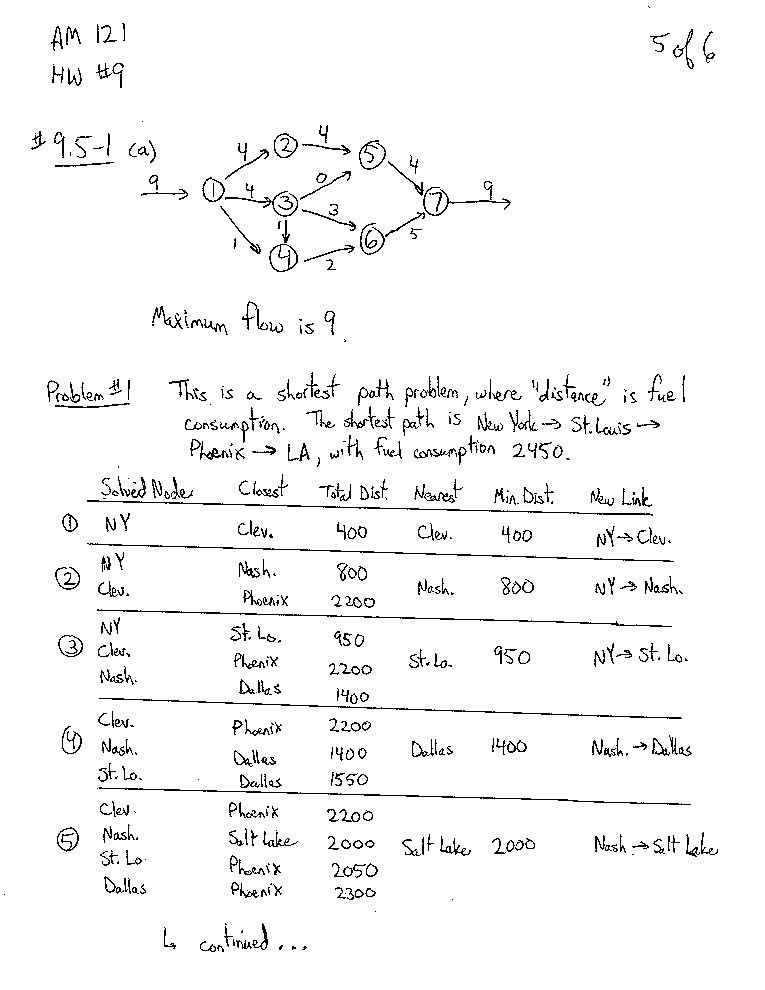 AM 121
5 of 6
HW #9
# 9.5-1 (a)
4 4
9 1 2 5 4
4 0 7 9
3 3
1 1 6 5
4 2
Maximum flow is 9.
Problem #1 This is a shortest path problem, where "distance" is fuel
consumption. The shortest path is New York → St. Louis →
Phoenix → LA, with fuel consumption 2450.
Solved Node Closest Total Dist. Nearest Min. Dist. New Link
① NY Clev. 400 Clev. 400 NY → Clev.
② NY Nash. 800 Nash. 800 NY → Nash.
Clev. Phoenix 2200
③ NY St. Lo. 950 St. Lo. 950 NY → St. Lo.
Clev. Phoenix 2200
Nash. Dallas 1400
④ Clev. Phoenix 2200 Dallas 1400 Nash. → Dallas
Nash. Dallas 1400
St. Lo. Dallas 1550
Clev. Phoenix 2200
⑤ Nash. Salt Lake 2000 Salt Lake 2000 Nash → Salt Lake
St. Lo. Phoenix 2050
Dallas Phoenix 2300
↳ continued...